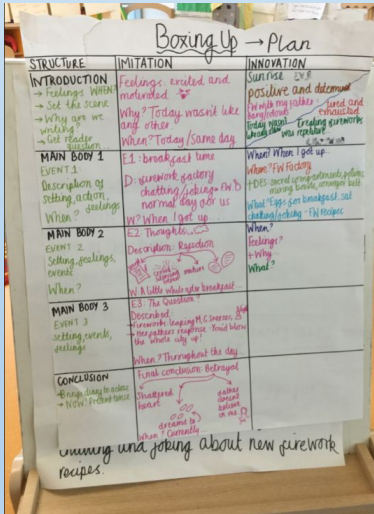 Boxing Up → Plan
STRUCTURE
IMITATION
INNOVATION
INTRODUCTION
→ Feelings WHEN?
→ Set the scene
→ Why are we
writing?
→ Get reader
question...
Feelings: excited and
Why? Today wasn't like
any other
When? Today/same day
Sunrise
positive and determined
FW with my father
tired and
exhausted
Today wasn't
Creating fireworks
was repetitive
MAIN BODY 1
EVENT 1:
Description of
setting, action,
When? feelings
E1: breakfast time
D: firework factory
chatting/joking FW
normal day for us
W? When I got up...
When? When I got up...
Where? FW Factory
+DES:
conveyor belt
What? Eggs for breakfast, sat
chatting/joking - FW recipes
MAIN BODY 2
EVENT 2
Setting, feelings,
events
When?
E2: Thoughts
Description: Rejection
W: A little while after breakfast...
When?
Feelings?
+ Why?
What?
MAIN BODY 3
EVENT 3
setting, events,
feelings
E3: The Question?
Described
→ fireworks: leaping
→ Her fathers response. You'd blow
the whole city up!
When? Throughout the day...
CONCLUSION
→ Brings diary to a close
→ NOW. Present tense
Final conclusion: Betrayal
Shattered
heart
father
doesn't
believe
in me
dreams to
When? Currently...
and joking about new firework
recipes.